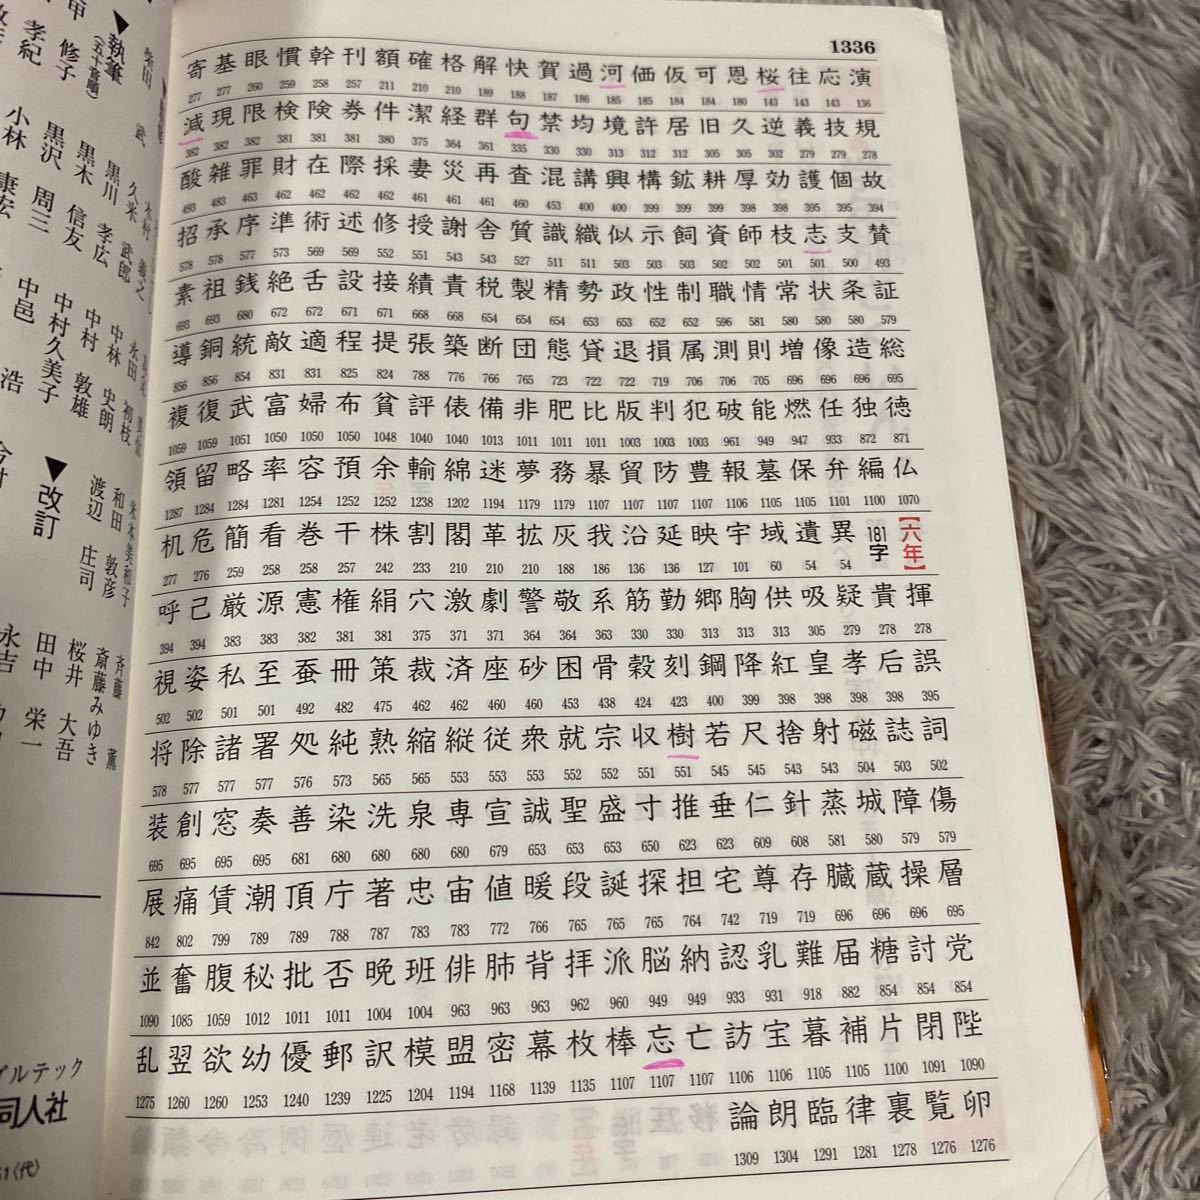 1336
演応往桜恩可仮価河過賀快解格確額刊幹慣眼基寄
136 143 143 143 180 184 184 185 185 186 187 188 189 210 210 211 257 258 259 260 277 277
規技義逆久旧居許境均禁句群経潔件券険検限現減
278 279 279 302 305 305 312 312 313 330 330 335 361 364 375 380 381 381 381 382 382 382
故個護効厚耕鉱構興講混査再災妻採際在財罪雑酸
394 395 395 398 398 399 399 399 400 400 453 460 461 461 461 462 462 462 462 463 483 493
賛支志枝師資飼示似織識質舎謝授修述術準序承招
493 500 501 501 502 502 502 503 503 511 511 527 543 543 551 552 569 569 573 577 578 578
証条状常情職制性政勢精製税責績接設舌絶銭祖素
579 580 580 580 581 596 652 652 653 653 654 654 664 668 668 671 671 672 672 680 693 693
総造像増則測属損退貸態団断築張提程適敵統銅導
695 696 696 696 705 706 706 719 722 722 723 765 766 776 788 824 825 831 831 854 856 856
徳独任燃能破犯判版比肥非備俵評貧布婦富武復複
871 872 933 947 949 961 1003 1003 1003 1011 1011 1011 1013 1040 1040 1048 1050 1050 1050 1051 1059 1059
仏編弁保墓報豊防貿暴務夢迷綿輸余預容率略留領
1070 1100 1101 1105 1105 1106 1107 1107 1107 1107 1179 1179 1194 1202 1238 1252 1252 1254 1281 1284 1284 1287
【六年】
181字
異遺域宇映延沿我灰拡革閣割株干巻看簡危机
54 54 60 101 127 136 136 186 188 210 210 210 233 242 257 258 258 259 276 277
揮貴疑吸供胸郷勤筋系敬警劇激穴絹権憲源厳己呼
278 278 279 305 313 313 313 330 330 363 364 364 371 371 375 381 381 382 383 383 394 394
誤后孝皇紅降鋼刻穀骨困砂座済裁策冊蚕至私姿視
395 398 398 398 398 399 400 423 424 438 453 460 460 462 462 475 482 492 501 501 502 502
詞誌磁射捨尺若樹収宗就衆従縦縮熟純処署諸除将
502 503 504 543 543 545 545 551 551 552 552 553 553 553 565 565 573 576 577 577 577 578
傷障城蒸針仁垂推寸盛聖誠宣専泉洗染善奏窓創装
579 579 580 581 608 609 623 623 650 653 653 653 679 680 680 680 680 681 695 695 695 695
層操蔵臓存尊宅担探誕段暖値宙忠著庁頂潮賃痛展
695 696 696 696 719 719 742 764 765 765 765 766 772 783 783 787 788 789 789 799 802 842
党討糖届難乳認納脳派拝背肺俳班晩否批秘腹奮並
854 854 854 882 918 931 933 949 949 960 962 963 963 963 1004 1004 1011 1011 1012 1059 1085 1090
陛閉片補暮宝訪亡忘棒枚幕密盟模訳郵優幼欲翌乱
1090 1091 1100 1105 1105 1106 1106 1107 1107 1107 1135 1139 1168 1194 1204 1225 1239 1240 1253 1260 1260 1275
卵覧裏律臨朗論
1276 1276 1278 1281 1291 1304 1309
▼執筆(五十音順)
黒川 孝広
黒木 信友
黒沢 周三
小林 康宏
中林 史朗
中村 敦雄
中村久美子
中邑 浩
▼改訂
米本美和子
和田 敦彦
渡辺 庄司
斉藤 薫
斎藤みゆき
桜井 大吾
田中 栄一